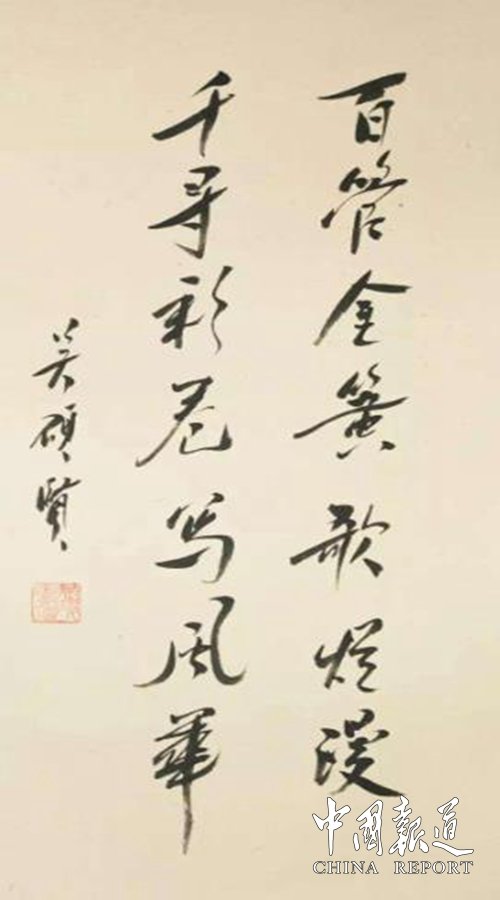 百管金簧歌烂漫
千寻彩卷写风华
吴硕贤
中国报道
CHINA REPORT